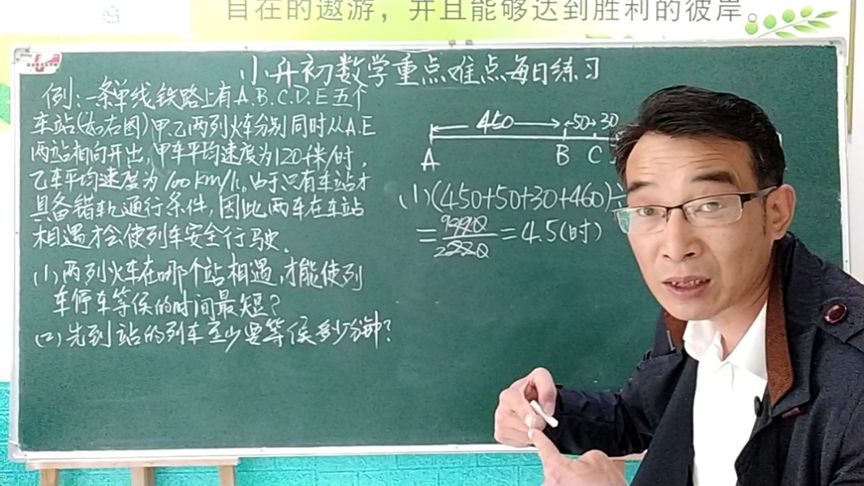 自在的遨游，并且能够达到胜利的彼岸。
小升初数学重点难点每日练习
例:一条单线铁路上有A.B.C.D.E五个
车站(如右图)甲.乙两列火车分别同时从A.E
两站相向开出,甲车平均速度为120千米/时,
乙车平均速度为100km/h。由于只有车站才
具备错轨通行条件,因此两车在车站
相遇才会使列车安全行驶.
(1)两列火车在哪个站相遇,才能使列
车停车等候的时间最短?
(2)先到站的列车至少要等候多少分钟?
450 50 30
A B C
(1)(450+50+30+460)
=990/220=4.5(时)